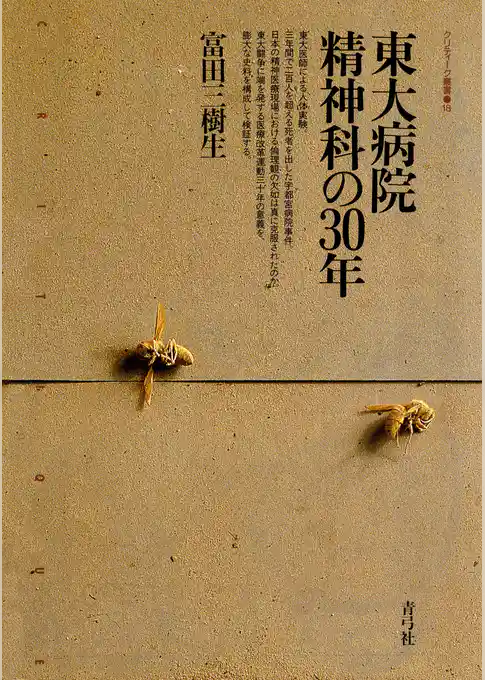 クリティーク叢書●18
東大病院
精神科の30年
東大医師による人体実験、
三年間で二百人を超える死者を出した宇都宮病院事件。
日本の精神医療現場における倫理観の欠如は真に克服されたのか。
東大闘争に端を発する医療改革運動三十年の意義を、
膨大な史料を構成して検証する。
富田三樹生
青弓社
CRITIQUE